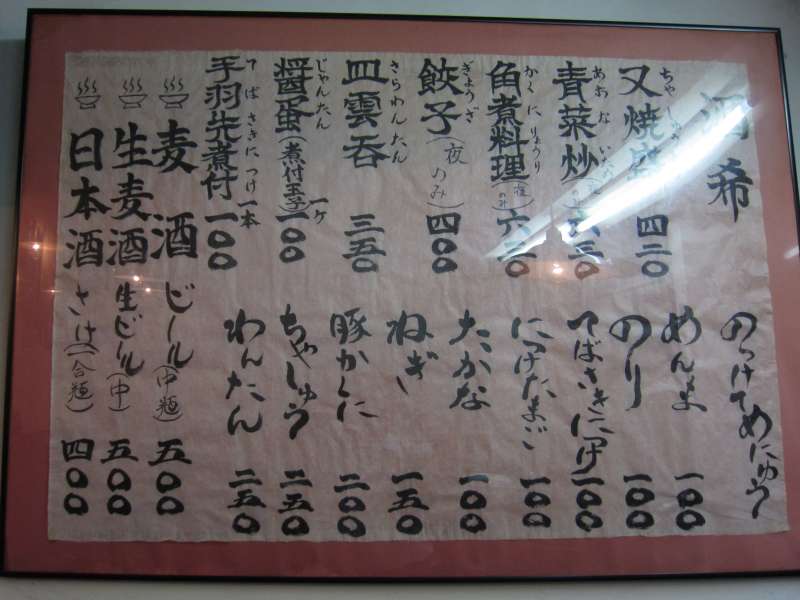 酒希
叉焼盛 ちゃしゅう 四二〇
青菜炒 あおな (夜のみ) 六三〇
角煮料理 かくにりょうり (夜のみ) 六三〇
餃子 ぎょうざ (夜のみ) 四〇〇
皿雲呑 さらわんたん 三五〇
醤蛋 じゃんたん (煮付玉子) 一ケ 一〇〇
手羽先煮付 てばさきにつけ 一本 一〇〇
麦酒 ビール (中瓶) 五〇〇
生麦酒 生ビール (中) 五〇〇
日本酒 さけ (一合瓶) 四〇〇
のっけてめにゅう
めんま 一〇〇
のり 一〇〇
てばさきにつけ 一〇〇
につけたまご 一〇〇
たかな 一〇〇
ねぎ 一五〇
豚かくに 二〇〇
ちゃしゅう 二五〇
わんたん 二五〇